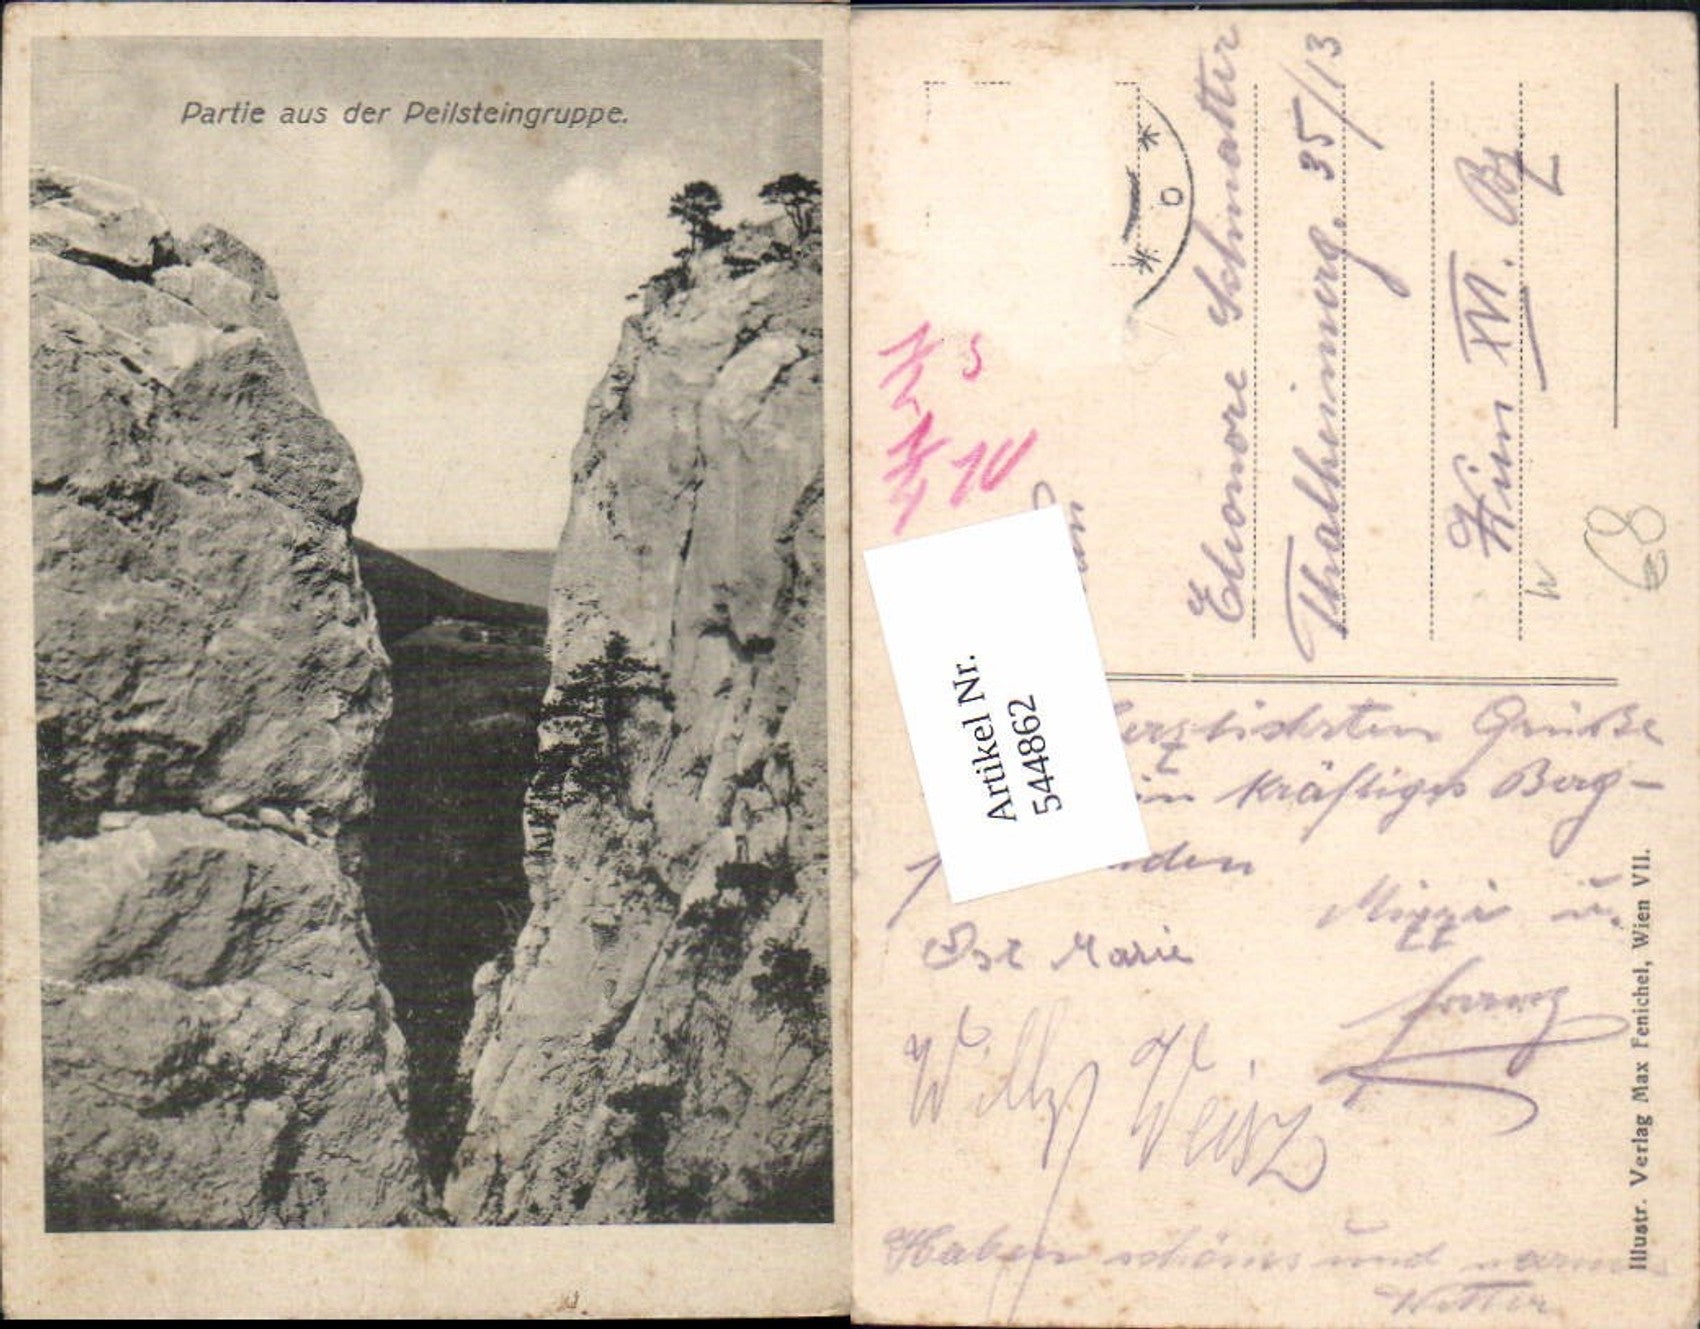 Partie aus der Peilsteingruppe.
Elionore Schnatter
Thalheimerg. 35/13
Wien XVI. Bz
€8
5
10
Artikel Nr.
544862
Herzlichsten Grüße
kräftiges Berg-
Mizzi u.
Marie
Franz
Willy Weisz
Haben schönes und warmes
Wetter
Illustr. Verlag Max Fenichel, Wien VII.